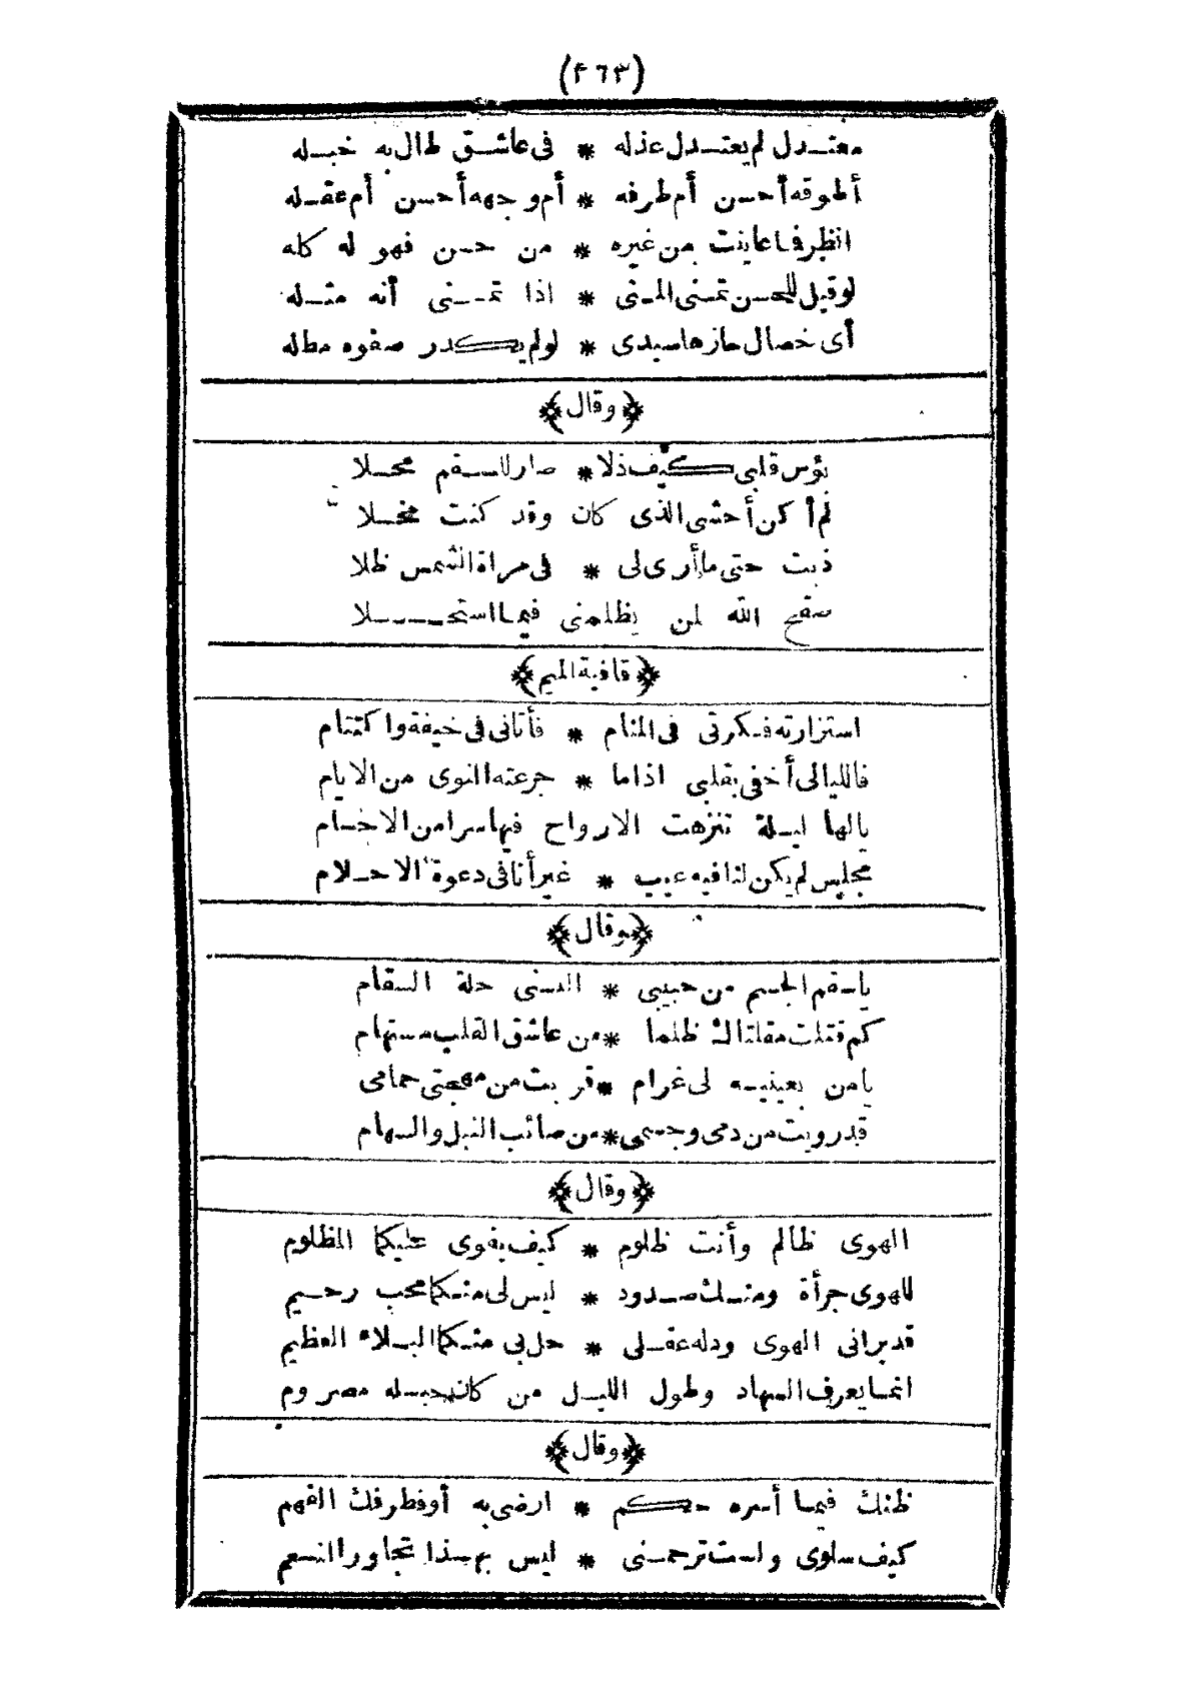 (٤٦٣)
معتدل لم يعتدل عذله * فى عاشق طال به خبله
أطوقه أحسن أم طرفه * أم وجهه أحسن أم عقله
انظر فما عاينت من غيره * من حسن فهو له كله
لو قيل للحسن تمنى المنى * اذا تمنى أنه مثله
أى خصال حازها سيدى * لو لم يكدر صفوه مطله
﴿وقال﴾
بؤس قلبى كيف ذلا * صار للسقم محلا
لم أكن أخشى الذى كان وقد كنت مخلا
ذبت حتى ما أرى لى * فى مراة الشمس ظلا
صفح الله لمن يظلمنى فيما استحلا
﴿قافية الميم﴾
استزارته فكرتى فى المنام * فأتانى فى خيفة واكتتام
فالليالى أخفى بقلبى اذا ما * جرعته النوى من الايام
يالها ليلة تنزهت الارواح فيها سرا من الاجسام
مجلس لم يكن لنا فيه عيب * غير أنا فى دعوة الاحلام
﴿وقال﴾
يا سقم الجسم من حبيبى * البسنى حلة السقام
كم قتلت مقلتاك ظلما * من عاشق القلب مستهام
يا من بعينيه لى غرام * قربت من مهجتى حمامى
قد رويت من دمى وجسمى * من صائب النبل والسهام
﴿وقال﴾
الهوى ظالم وأنت ظلوم * كيف يقوى عليكما المظلوم
للهوى جرأة ومنك صدود * ليس لى منكما محب رحيم
قد برانى الهوى ودله عقلى * حل بى منكما البلاء العظيم
انما يعرف السهاد وطول الليل من كان حبله مصروم
﴿وقال﴾
ظنك فيما أسره حكم * ارضى به أو فطرفك الفهم
كيف سلوى ولست ترحمنى * ليس بهذا تجاور النعم